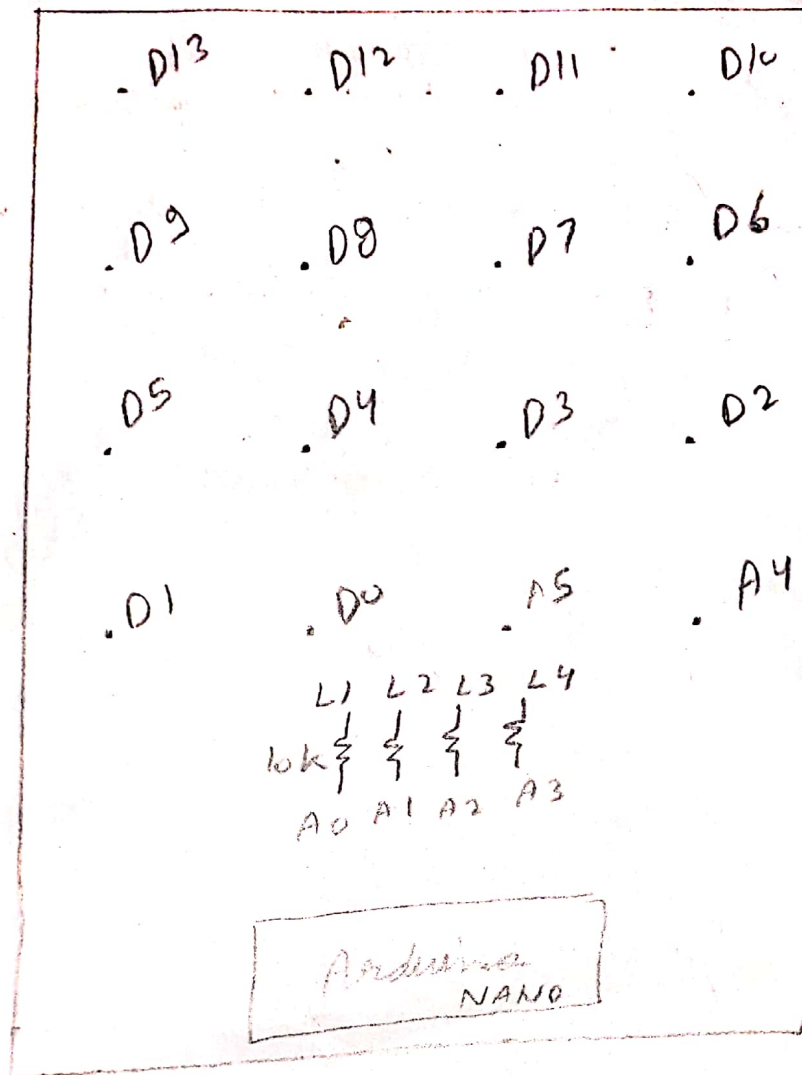 D13 D12 D11 D10
D9 D8 D7 D6
D5 D4 D3 D2
D1 D0 A5 A4
L1 L2 L3 L4
10k
A0 A1 A2 A3
Arduino
NANO